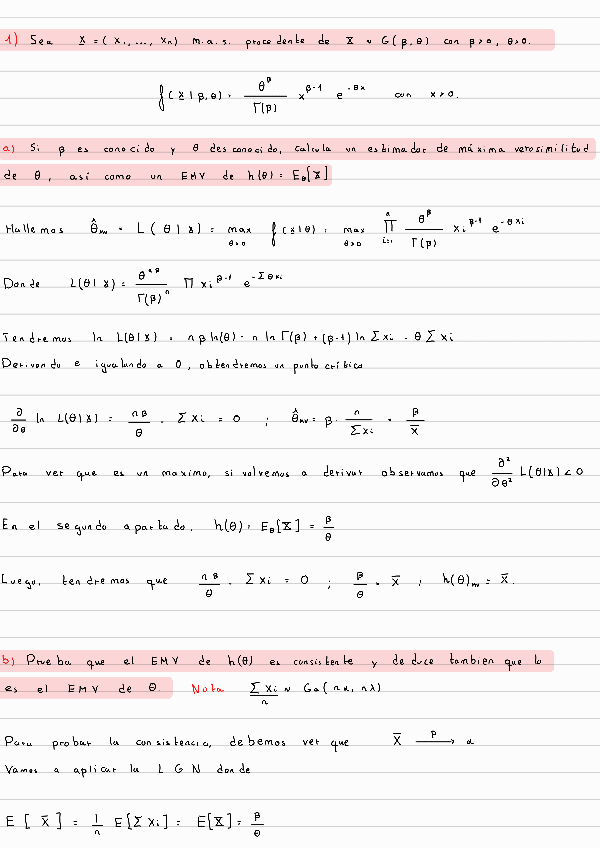 1) Sea X = (X₁, ..., Xₙ) m.a.s. procedente de X ∼ G(β, θ) con β>0, θ>0.
f(x|β,θ) = θ^β / Γ(β) x^{β-1} e^{-θx} con x>0.
a) Si β es conocido y θ desconocido, calcula un estimador de máxima verosimilitud
de θ, así como un EMV de h(θ) = E_θ[X]
Hallemos θ̂_MV = L(θ|x) = max_{θ>0} f(x|θ) = max_{θ>0} ∏_{i=1}^{n} θ^β / Γ(β) xi^{β-1} e^{-θxi}
Donde L(θ|x) = θ^{nβ} / Γ(β)^n ∏ xi^{β-1} e^{-Σθxi}
Tendremos ln L(θ|x) = nβ ln(θ) - n ln Γ(β) + (β-1) ln Σxi - θ Σxi
Derivando e igualando a 0, obtendremos un punto crítico
∂/∂θ ln L(θ|x) = nβ/θ - Σxi = 0 ; θ̂_MV = β · n/Σxi = β/x̄
Para ver que es un maximo, si volvemos a derivar observamos que ∂²/∂θ² L(θ|x) < 0
En el segundo apartado, h(θ) = E_θ[X] = β/θ
Luego, tendremos que nβ/θ - Σxi = 0 ; β/θ = x̄ ; h(θ)_MV = x̄.
b) Prueba que el EMV de h(θ) es consistente y deduce tambien que lo
es el EMV de θ. Nota Σxi/n ∼ Ga(nα, nλ)
Para probar la consistencia, debemos ver que X̄ →^P α
Vamos a aplicar la LGN donde
E[X̄] = 1/n E[Σxi] = E[X] = β/θ